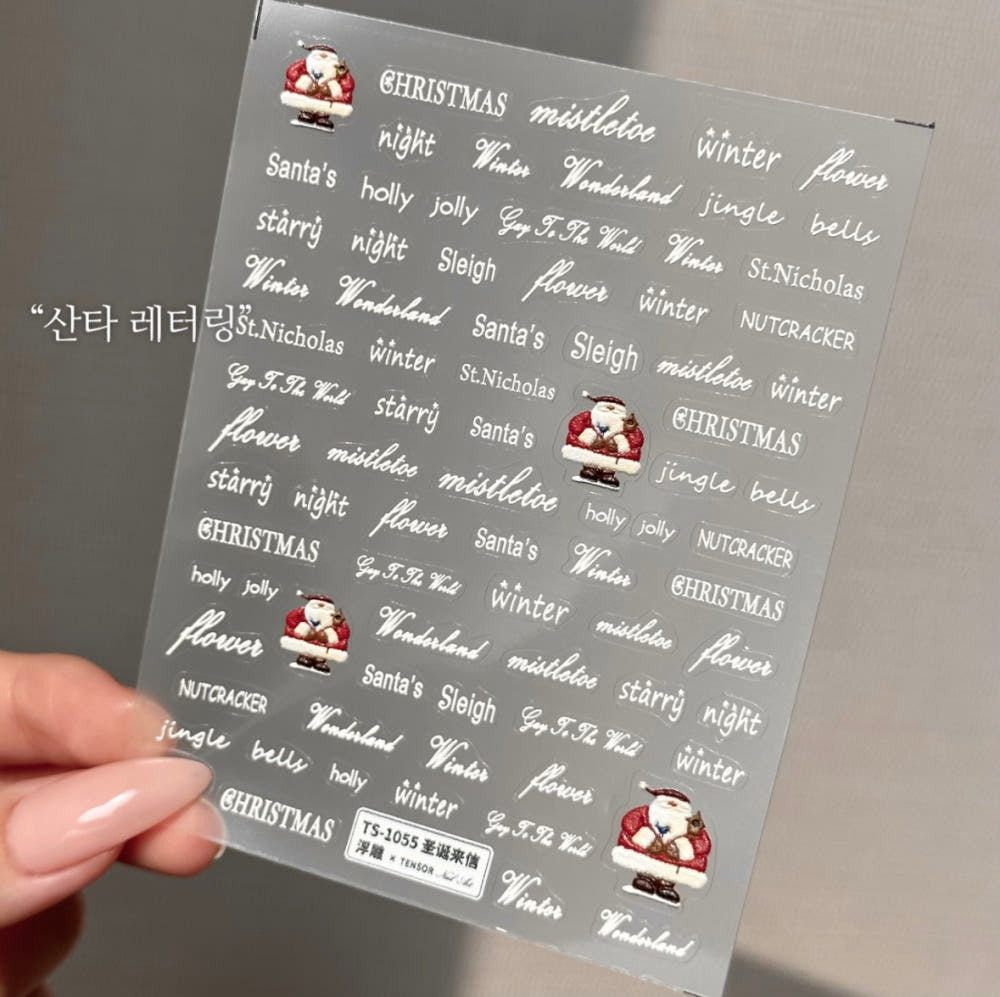 CHRISTMAS mistletoe winter flower
night Winter Wonderland jingle bells
Santa's holly jolly Gay To The World Winter St.Nicholas
starry night Sleigh flower winter NUTCRACKER
Winter Wonderland Santa's Sleigh mistletoe winter
“산타 레터링”
St.Nicholas winter St.Nicholas CHRISTMAS
Gay To The World starry Santa's jingle bells
flower mistletoe mistletoe holly jolly NUTCRACKER
starry night flower Santa's Winter CHRISTMAS
CHRISTMAS Gay To The World winter mistletoe flower
holly jolly Wonderland mistletoe starry night
flower Santa's Sleigh Gay To The World winter
NUTCRACKER Wonderland Winter flower
jingle bells holly winter Gay To The World
CHRISTMAS TS-1055 圣诞来信
浮雕 × TENSOR Nail Art
Winter Wonderland